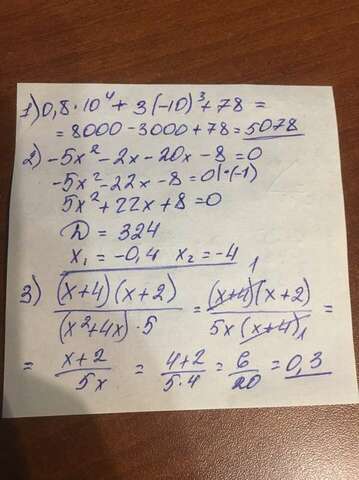 1) 0,8·10⁴ + 3(-10)³ + 78 =
= 8000 - 3000 + 78 = 5078
2) -5x² - 2x - 20x - 8 = 0
-5x² - 22x - 8 = 0 |·(-1)
5x² + 22x + 8 = 0
D = 324
x₁ = -0,4 x₂ = -4
3) (x+4)(x+2) / (x²+4x)·5 = (x+4)¹(x+2) / 5x(x+4)₁ =
= x+2 / 5x = 4+2 / 5·4 = 6 / 20 = 0,3